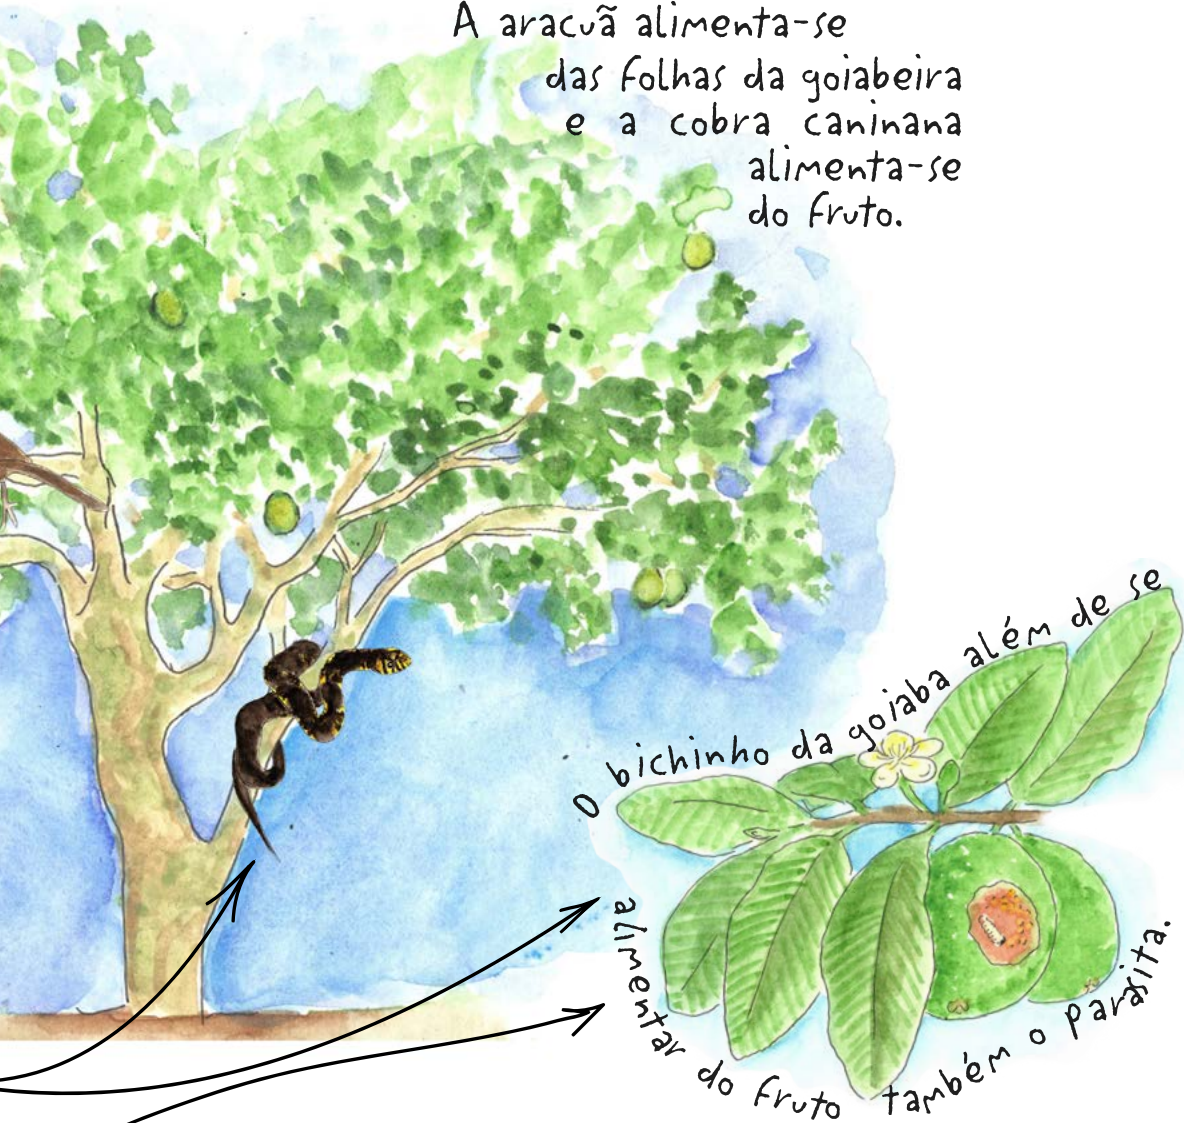 A aracuã alimenta-se
das folhas da goiabeira
e a cobra caninana
alimenta-se
do fruto.
O bichinho da goiaba além de se
alimentar do fruto também o parasita.